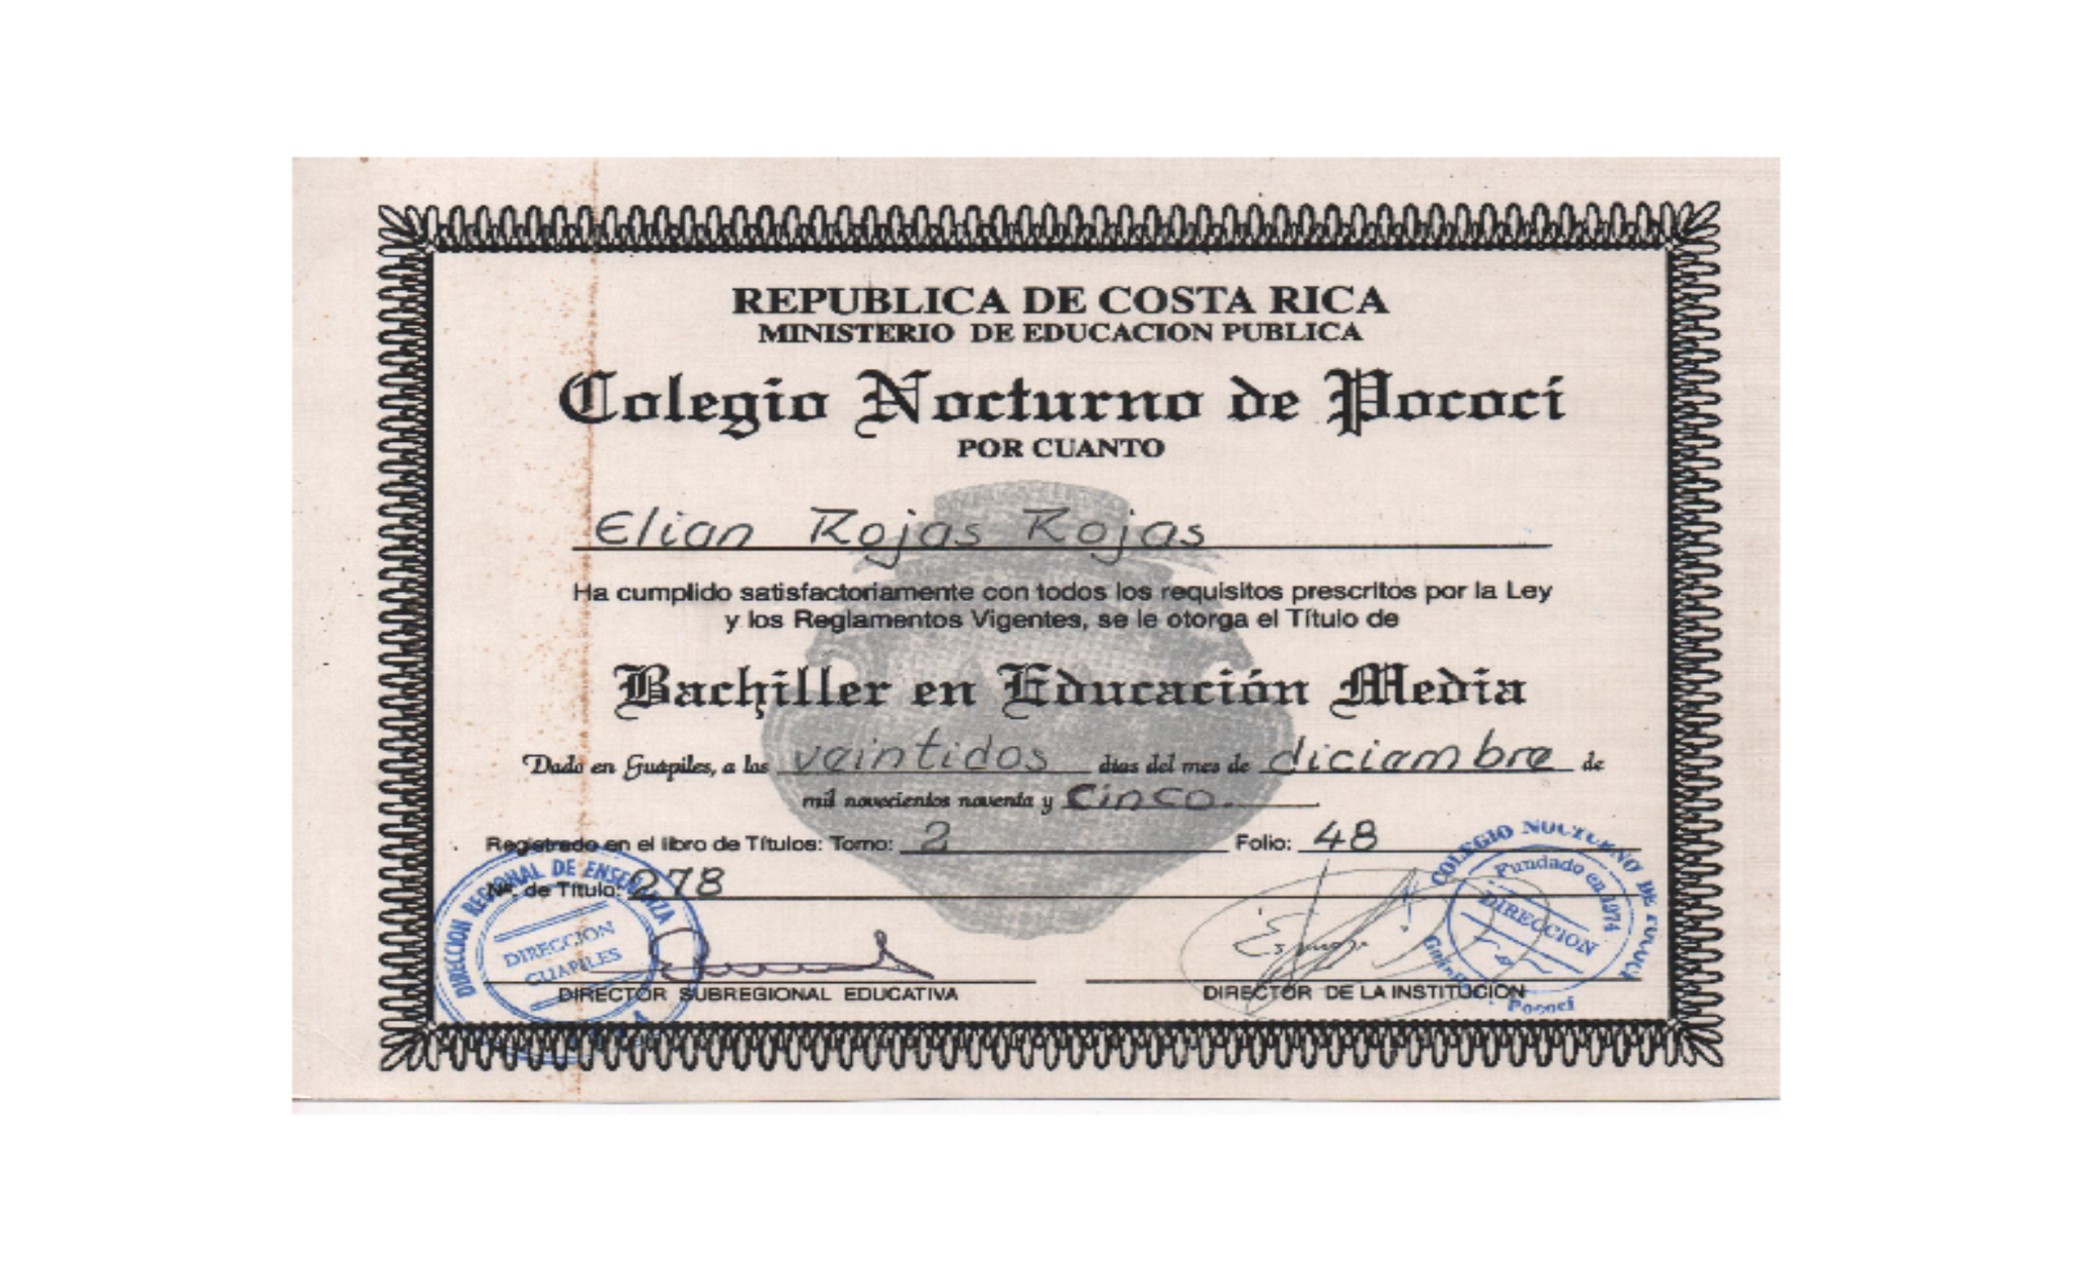 REPUBLICA DE COSTA RICA
MINISTERIO DE EDUCACION PUBLICA
Colegio Nocturno de Pococí
POR CUANTO
Elian Rojas Rojas
Ha cumplido satisfactoriamente con todos los requisitos prescritos por la Ley
y los Reglamentos Vigentes, se le otorga el Título de
Bachiller en Educación Media
Dado en Guápiles, a los veintidos días del mes de diciembre de
mil novecientos noventa y cinco.
Registrado en el libro de Títulos: Tomo: 2 Folio: 48
Nº. de Título: 278
DIRECCION REGIONAL DE ENSEÑANZA
DIRECCION
GUAPILES
COLEGIO NOCTURNO DE POCOCI
Fundado en 1974
DIRECCION
Pococí
DIRECTOR SUBREGIONAL EDUCATIVA
DIRECTOR DE LA INSTITUCION